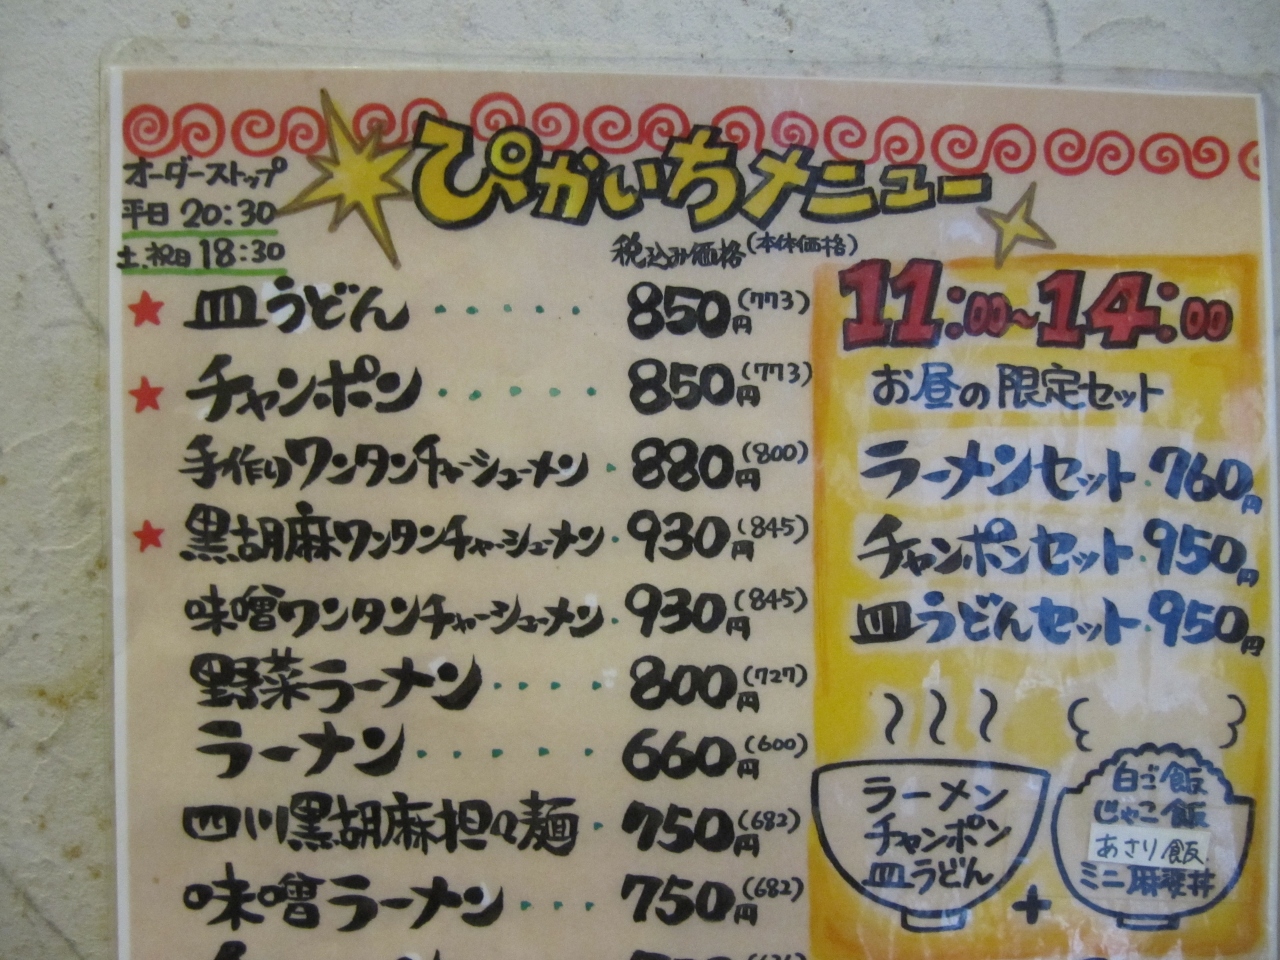 ぴかいちメニュー
オーダーストップ
平日 20:30
土、祝日 18:30
税込み価格(本体価格)
★ 皿うどん ····· 850円(773)
★ チャンポン ····· 850円(773)
手作りワンタンチャーシューメン · 880円(800)
★ 黒胡麻ワンタンチャーシューメン · 930円(845)
味噌ワンタンチャーシューメン · 930円(845)
野菜ラーメン ···· 800円(727)
ラーメン ····· 660円(600)
四川黒胡麻担々麺 · 750円(682)
味噌ラーメン ··· 750円(682)
11:00~14:00
お昼の限定セット
ラーメンセット·760円
チャンポンセット·950円
皿うどんセット·950円
ラーメン
チャンポン
皿うどん
+
白ご飯
じゃこ飯
あさり飯
ミニ麻婆丼